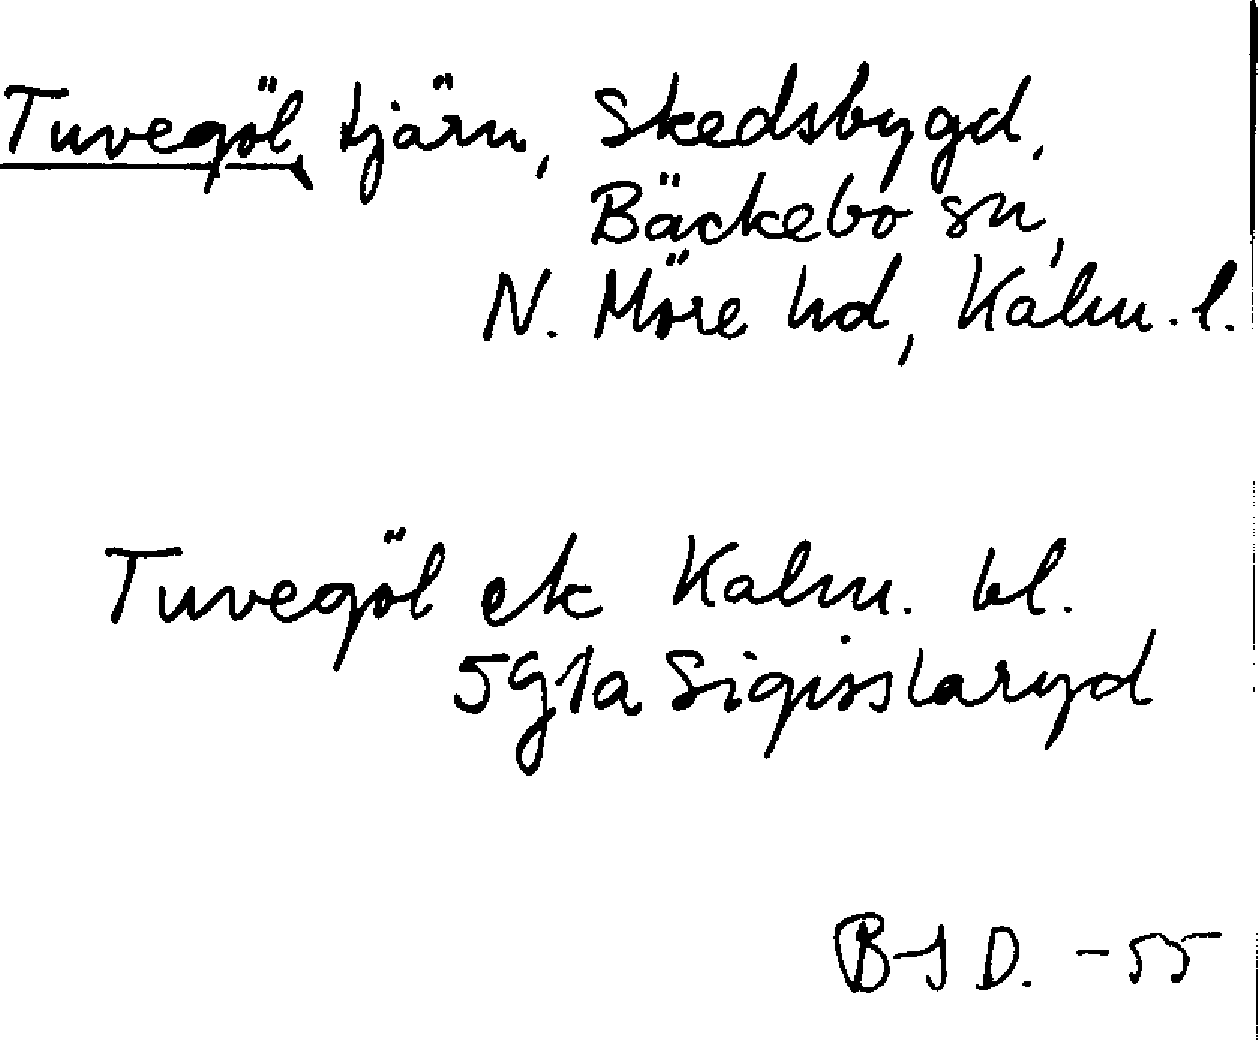 Tuvegöl, tjärn, Skedsbygd,
Bäckebo sn,
N. Möre hd, Kalm. l.
Tuvegöl ek Kalm. bl.
5G1a Sigisslaryd
B-J D. -55